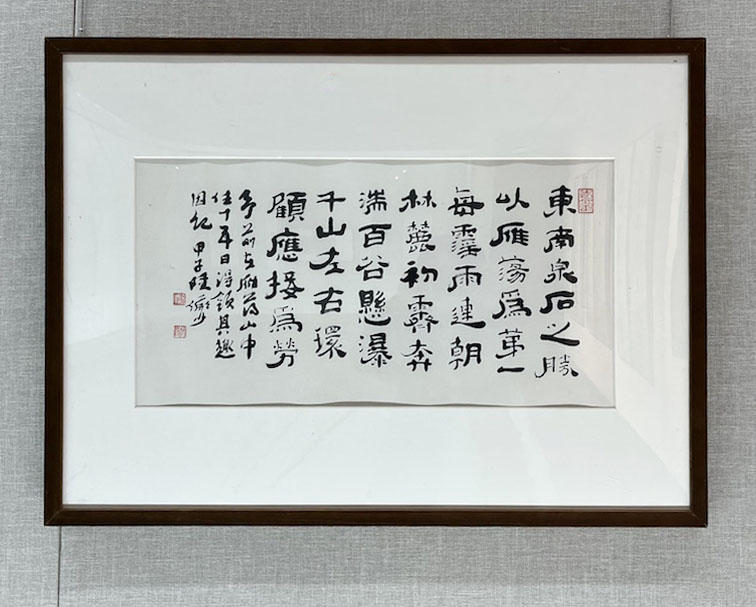 東南泉石之勝
以雁蕩爲第一
每霪雨連朝
林麓初霽奔
湍百谷懸瀑
千山左右環
顧應接爲勞
予前在雁蕩山中
住十日得領其趣
因記 甲子陸儼少